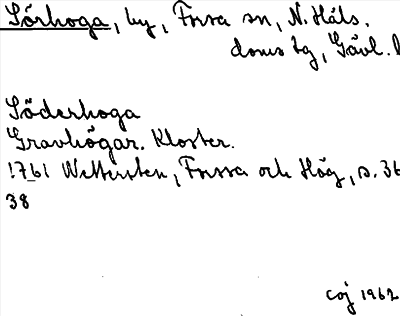 Sörhoga, by, Forsa sn, N. Häls.
doms hg, Gävl. l
Söderhoga
Gravhögar. Kloster.
1761 Wettersten, Forssa och Hög, s. 36
38
coj 1962